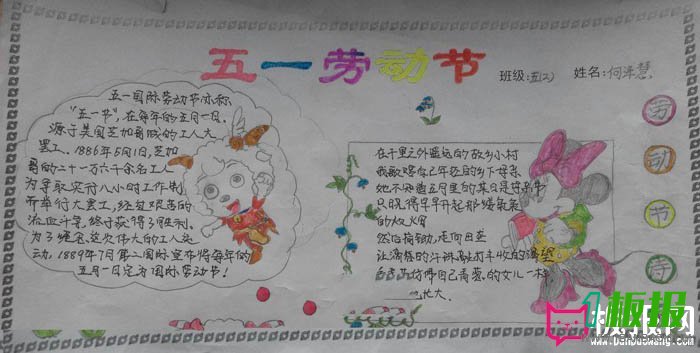 五一劳动节
班级:五(2) 姓名:何泽慧
五一国际劳动节亦称
"五一节",在每年的五月一日.
源于美国芝加哥城的工人大
罢工,1886年5月1日,芝加
哥的二十一万六千余名工人
为争取实行八小时工作制
而举行大罢工,经过艰苦的
流血斗争,终于获得了胜利.
为了纪念这次伟大的工人运
动,1889年7月第二国际宣布将每年的
五月一日定为国际劳动节!
在千里之外遥远的故乡小村
我敢赌自己年轻的乡下母亲
她不知道五月里的某日是
只晓得早早升起那缕
的炊火
然后荷锄,走向田
让满
自己
的女儿一样
大
劳
动
节
诗
1板报
板报网
www.banbaowang.com